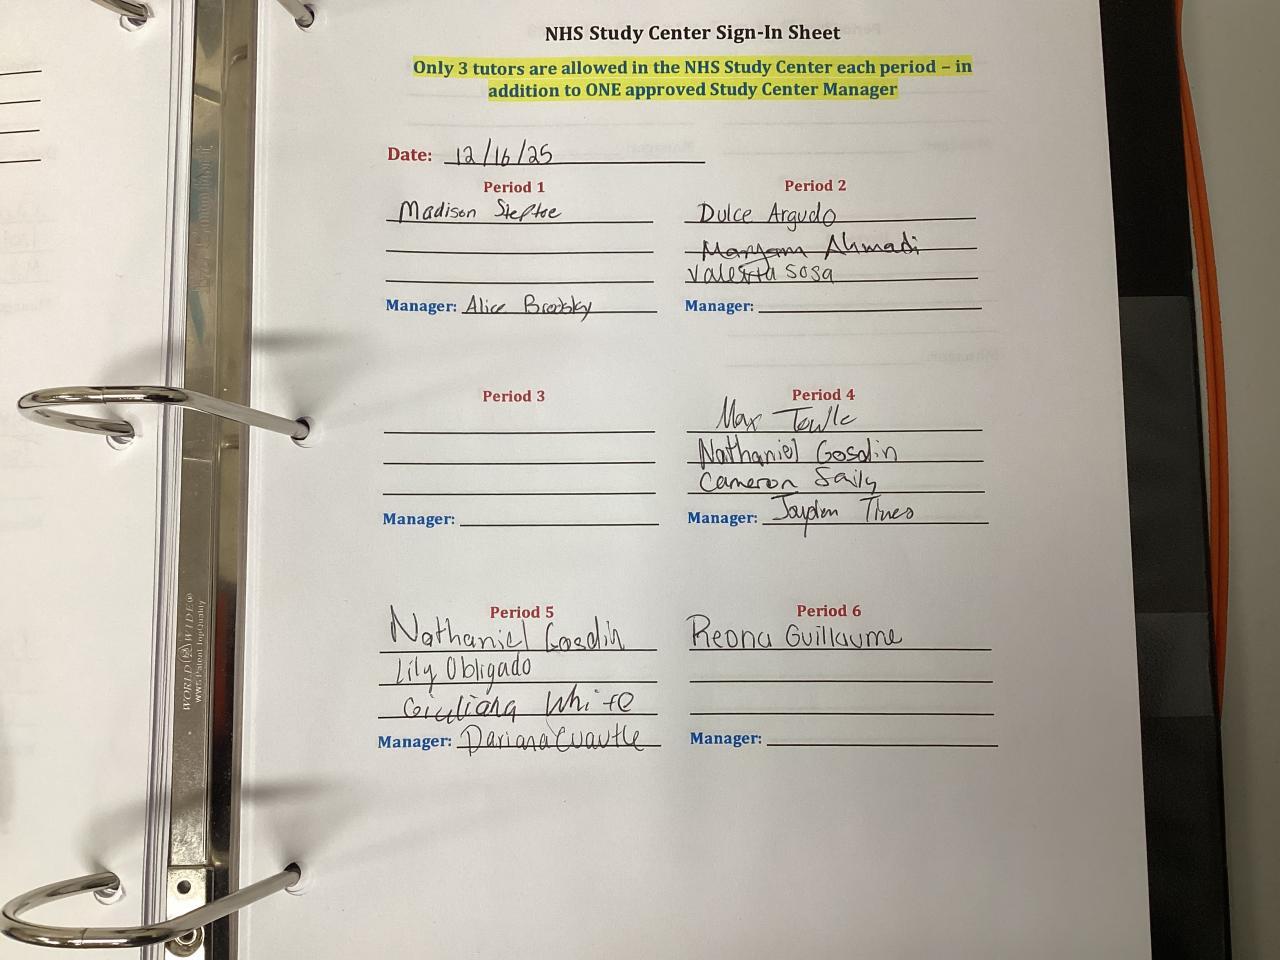 NHS Study Center Sign-In Sheet
Only 3 tutors are allowed in the NHS Study Center each period – in
addition to ONE approved Study Center Manager
Date: 12/16/25
Period 1
Madison Steptoe
Manager: Alice Brodsky
Period 2
Dulce Argudo
Maryam Ahmadi
Valentta Sosa
Manager:
Period 3
Manager:
Period 4
Max Towle
Nathaniel Gosdin
Cameron Saily
Manager: Jayden Tines
Period 5
Nathaniel Gosdin
Lily Obligado
Giuliana White
Manager: Dariana Cuautle
Period 6
Reona Guillaume
Manager:
WORLD WIDE